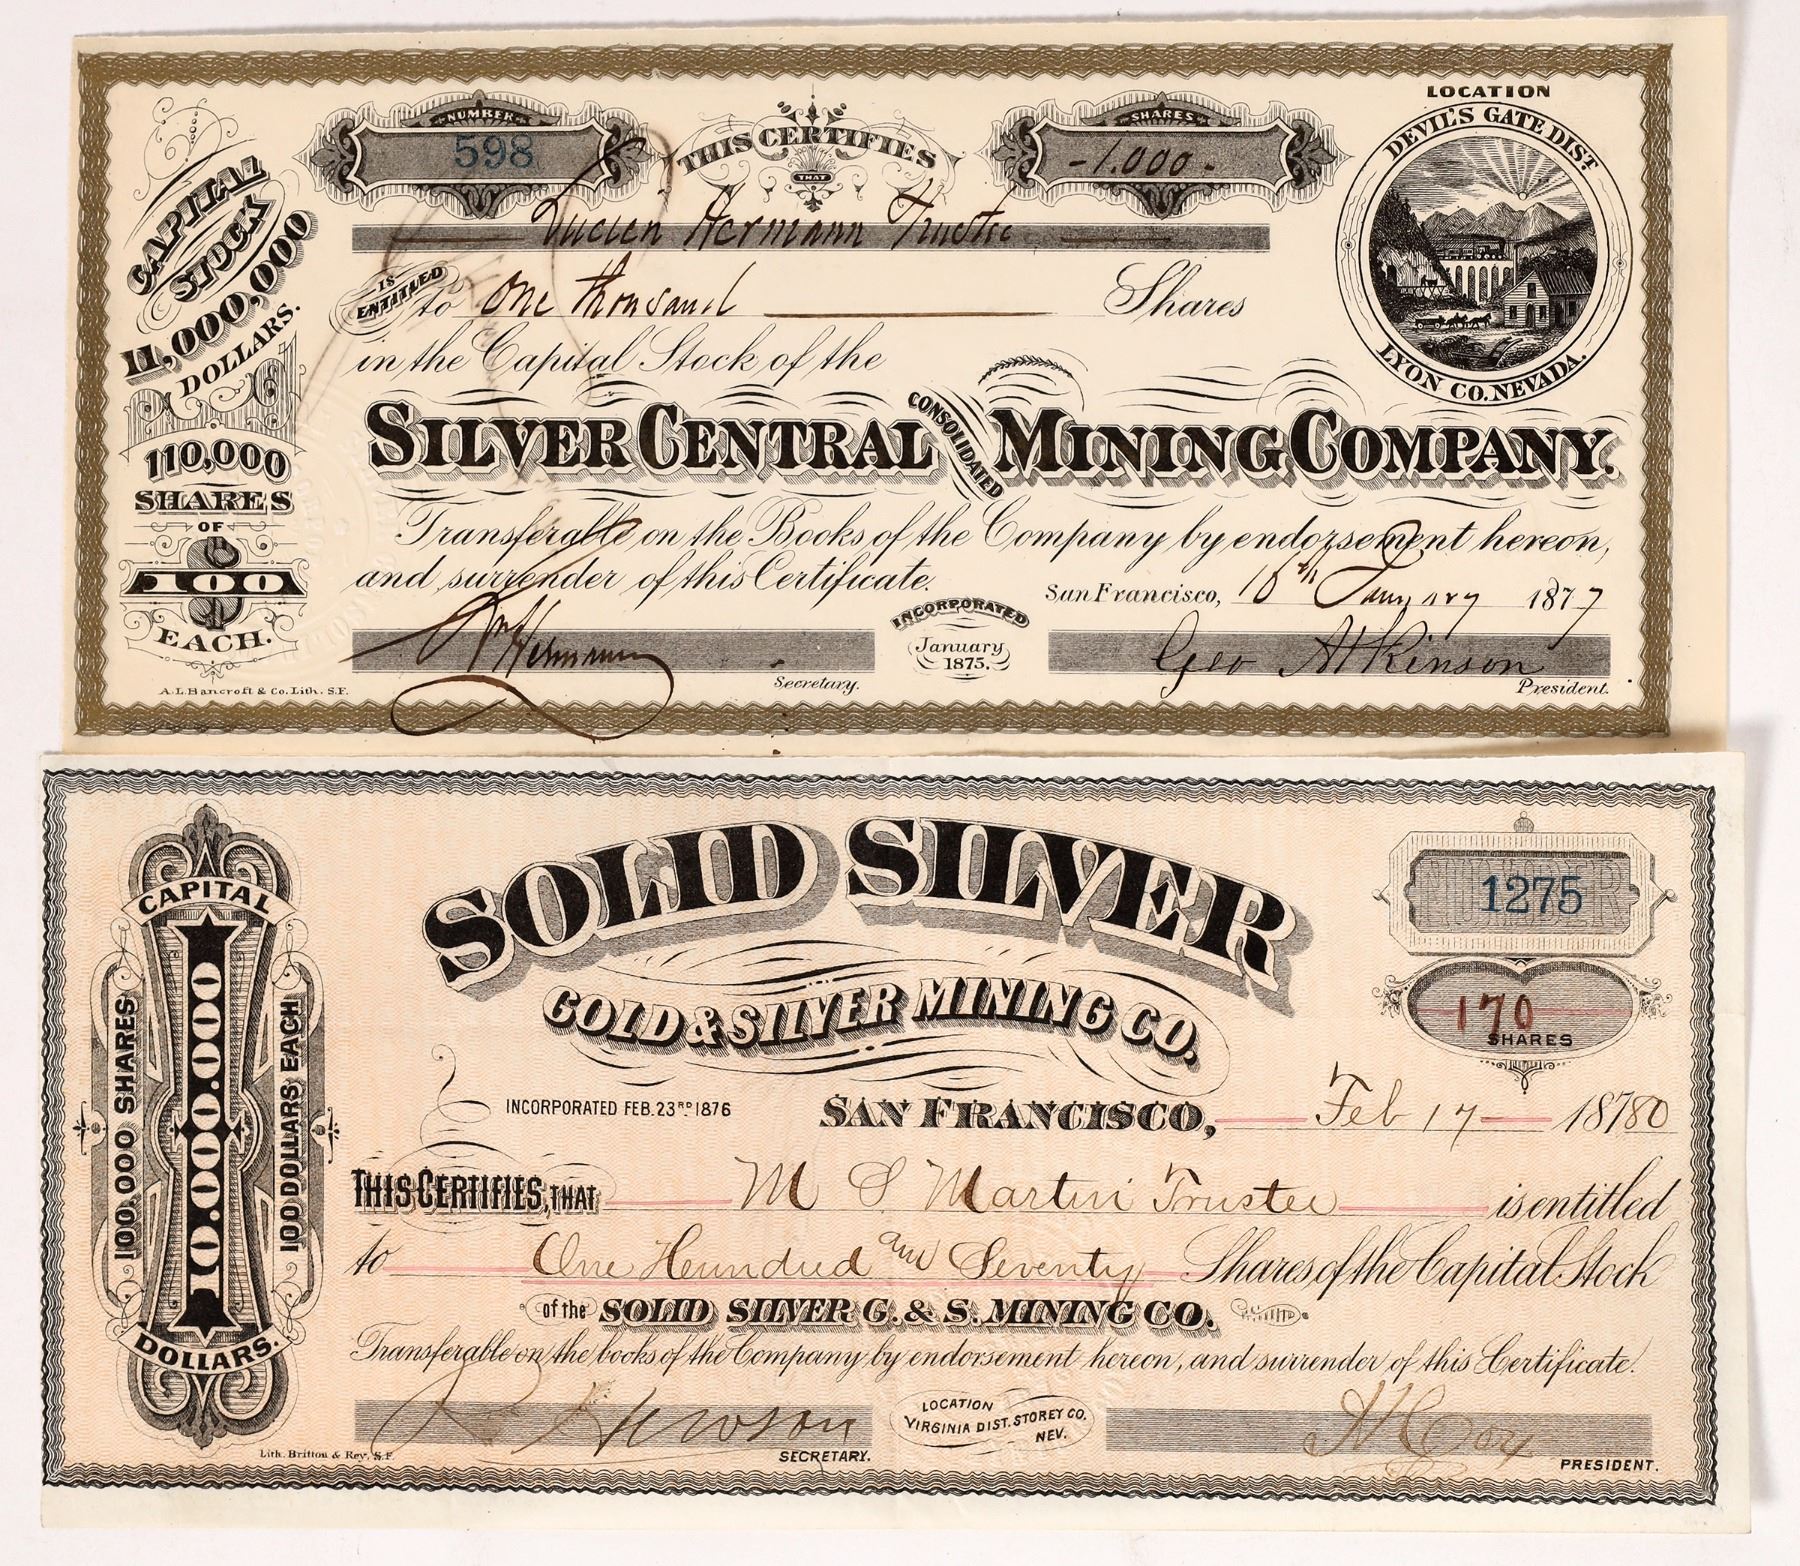 NUMBER
598
THIS CERTIFIES
THAT
SHARES
-1.000-
LOCATION
DEVIL'S GATE DIST.
LYON CO. NEVADA.
CAPITAL
STOCK
11,000,000
DOLLARS.
110,000
SHARES
OF
$
100
EACH.
Lucien Hermann Trustee
IS
ENTITLED
to One thousand Shares
in the Capital Stock of the
SILVER CENTRAL CONSOLIDATED MINING COMPANY.
Transferable on the Books of the Company by endorsement hereon,
and surrender of this Certificate.
San Francisco, 10th January 1877
INCORPORATED
January
1875.
Hermann
Secretary.
Geo Atkinson
President.
A.L. Bancroft & Co. Lith. S.F.
SOLID SILVER
GOLD & SILVER MINING CO.
1275
170
SHARES
CAPITAL
10.000.000
DOLLARS.
100.000 SHARES
100 DOLLARS EACH
INCORPORATED FEB. 23RD 1876
SAN FRANCISCO, Feb 17 18780
THIS CERTIFIES, THAT M S Martin Trustee is entitled
to One Hundred and Seventy Shares of the Capital Stock
of the SOLID SILVER G. & S. MINING CO.
Transferable on the books of the Company by endorsement hereon, and surrender of this Certificate.
LOCATION
VIRGINIA DIST. STOREY CO.
NEV.
SECRETARY.
PRESIDENT.
Lith. Britton & Rey, S.F.